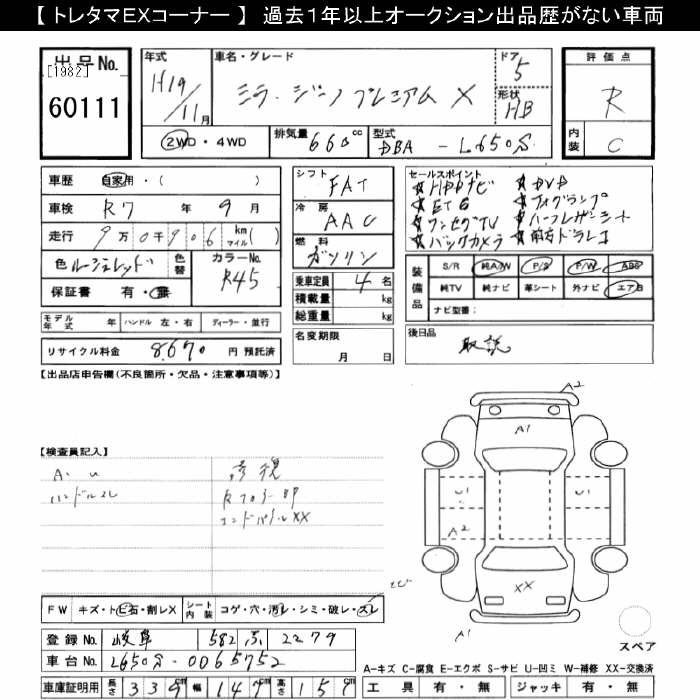 【 トレタマEXコーナー 】 過去1年以上オークション出品歴がない車両
出品No.
[1982]
60111
年式
H19/11月
車名・グレード
ミラ・ジーノ プレミアム X
ドア
5
形状
HB
2WD・4WD
排気量 660cc
型式 DBA - L650S
評価点
R
内装
C
車歴 自家用・( )
車検 R7 年 9 月
走行 9万0千906 km マイル( )
色 ルージュレッド
色替
カラーNo.
R45
保証書 有・無
モデル年式 年 ハンドル 左・右 ディーラー・並行
リサイクル料金 8670 円 預託済
シフト
FAT
冷房
AAC
燃料
ガソリン
乗車定員 4 名
積載量 kg
総重量 kg
名変期限
月 日
セールスポイント
★HDDナビ ★DVD
★ETC ★フォグランプ
★ワンセグTV ★ハーフレザーシート
★バックカメラ ★前方ドラレコ
装備品
S/R 純A/W P/S P/W ABS
純TV 純ナビ 革シート 外ナビ エアB
ナビ型番:
後日品
取説
【出品店申告欄(不良箇所・欠品・注意事項等)】
【検査員記入】
A・U
ハンドルスレ
エンドパネルXX
A2
A1
U1
U1
A2
XX
A1
スペア
FW キズ・トビ石・割レX
シート内装 コゲ・穴・汚レ・シミ・破レ・スレ
登録No. 岐阜 582 ふ 2279
車台No. L650S-0065752
車庫証明用 長さ 339 幅 147 高さ 151
A-キズ C-腐食 E-エクボ S-サビ U-凹ミ W-補修 XX-交換済
工具 有・無 ジャッキ 有・無